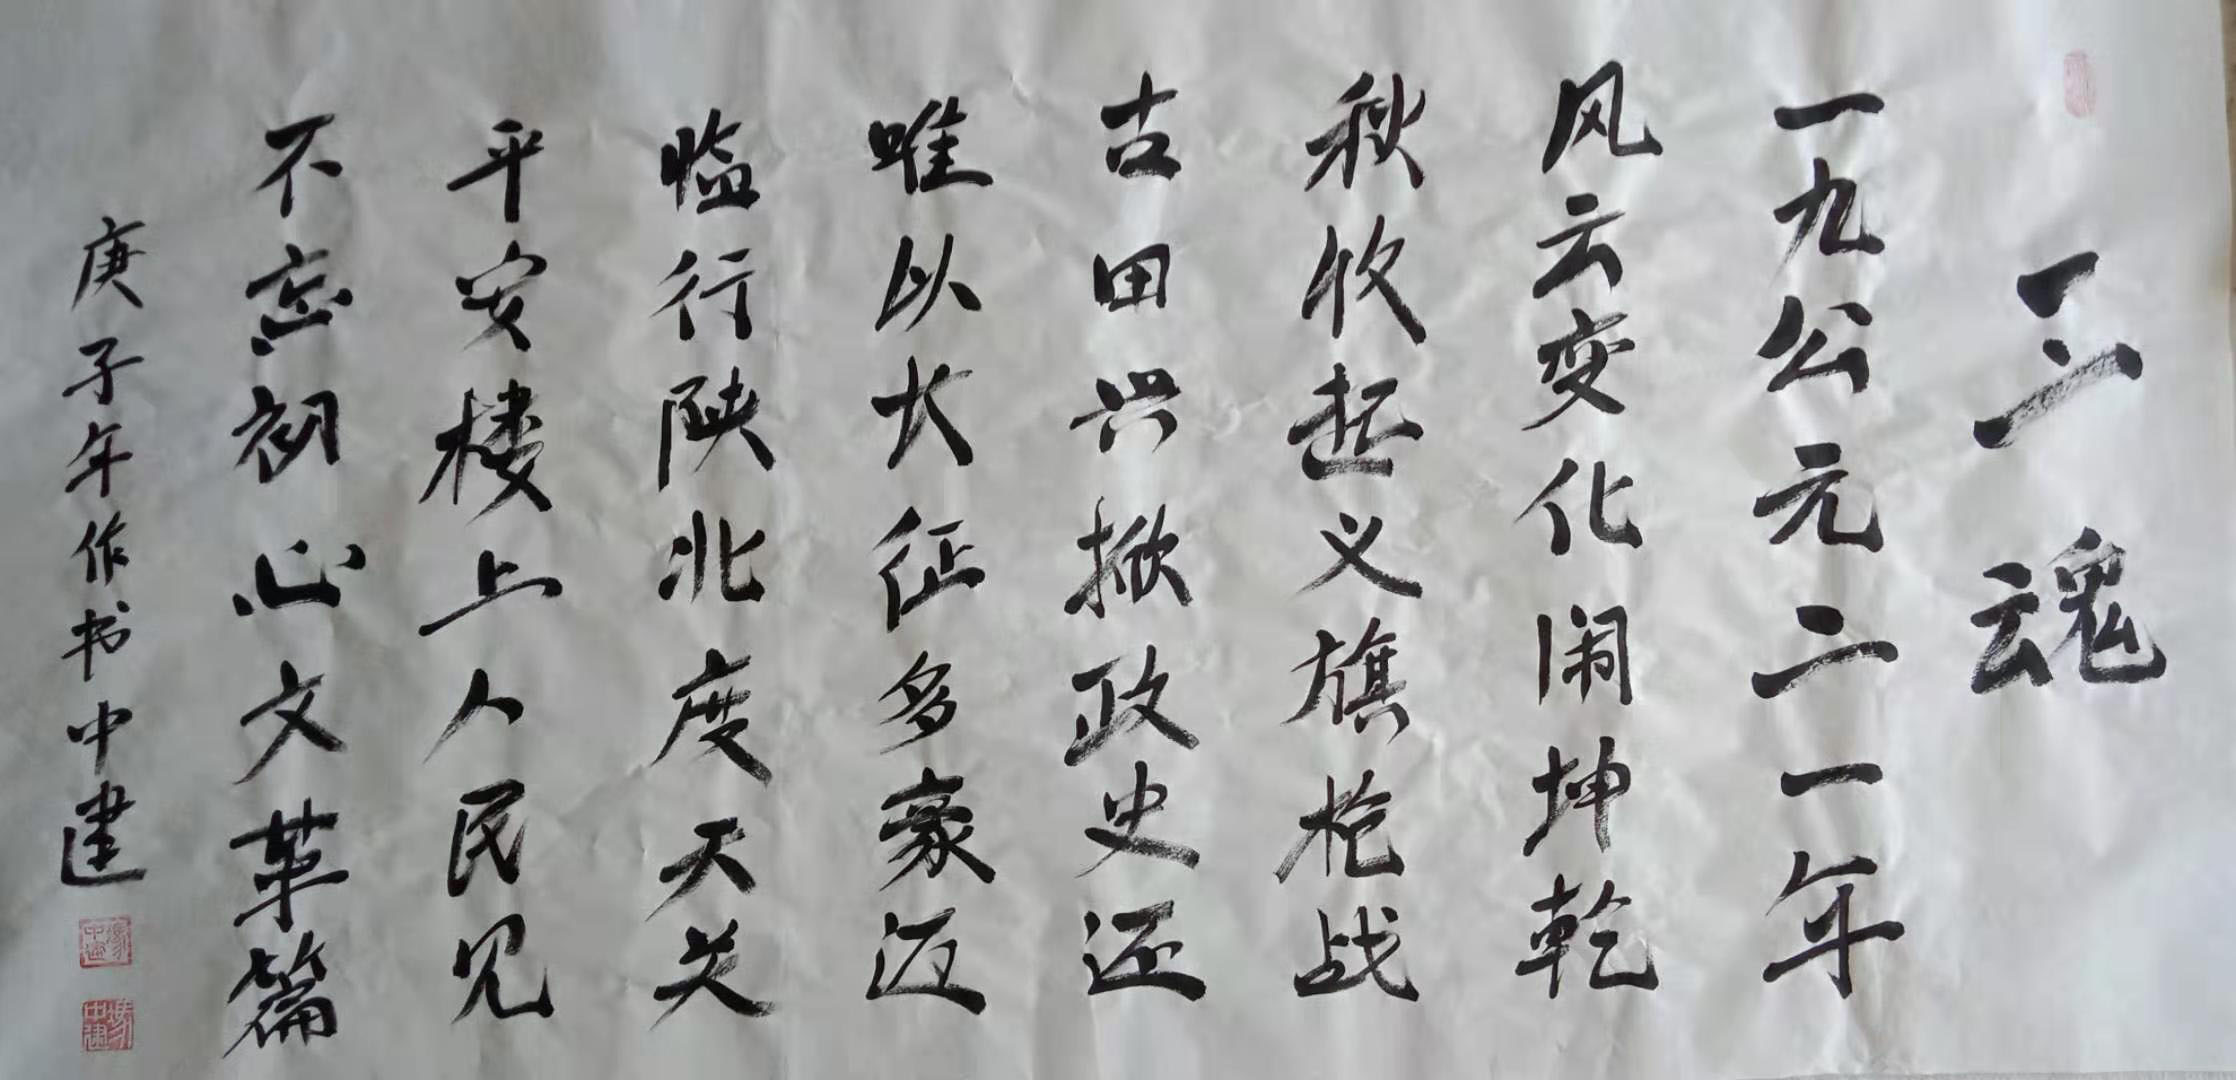 三魂
一九公元二一年
风云变化闹坤乾
秋收起义旗枪战
古田兴掀政史还
唯以长征多豪迈
临行陕北度天关
平安楼上人民见
不忘初心文革篇
庚子年作书中建
冯中建
冯中建